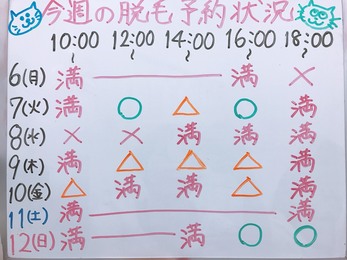 今週の脱毛予約状況
10:00 12:00 14:00 16:00 18:00
〜 〜 〜 〜 〜
6(月) 満 ――― 満 ×
7(火) 満 ○ △ ○ 満
8(水) × × 満 満 満
9(木) 満 △ △ △ 満
10(金) △ 満 満 △ 満
11(土) 満 ――― 満
12(日) 満 ― 満 ○ ○